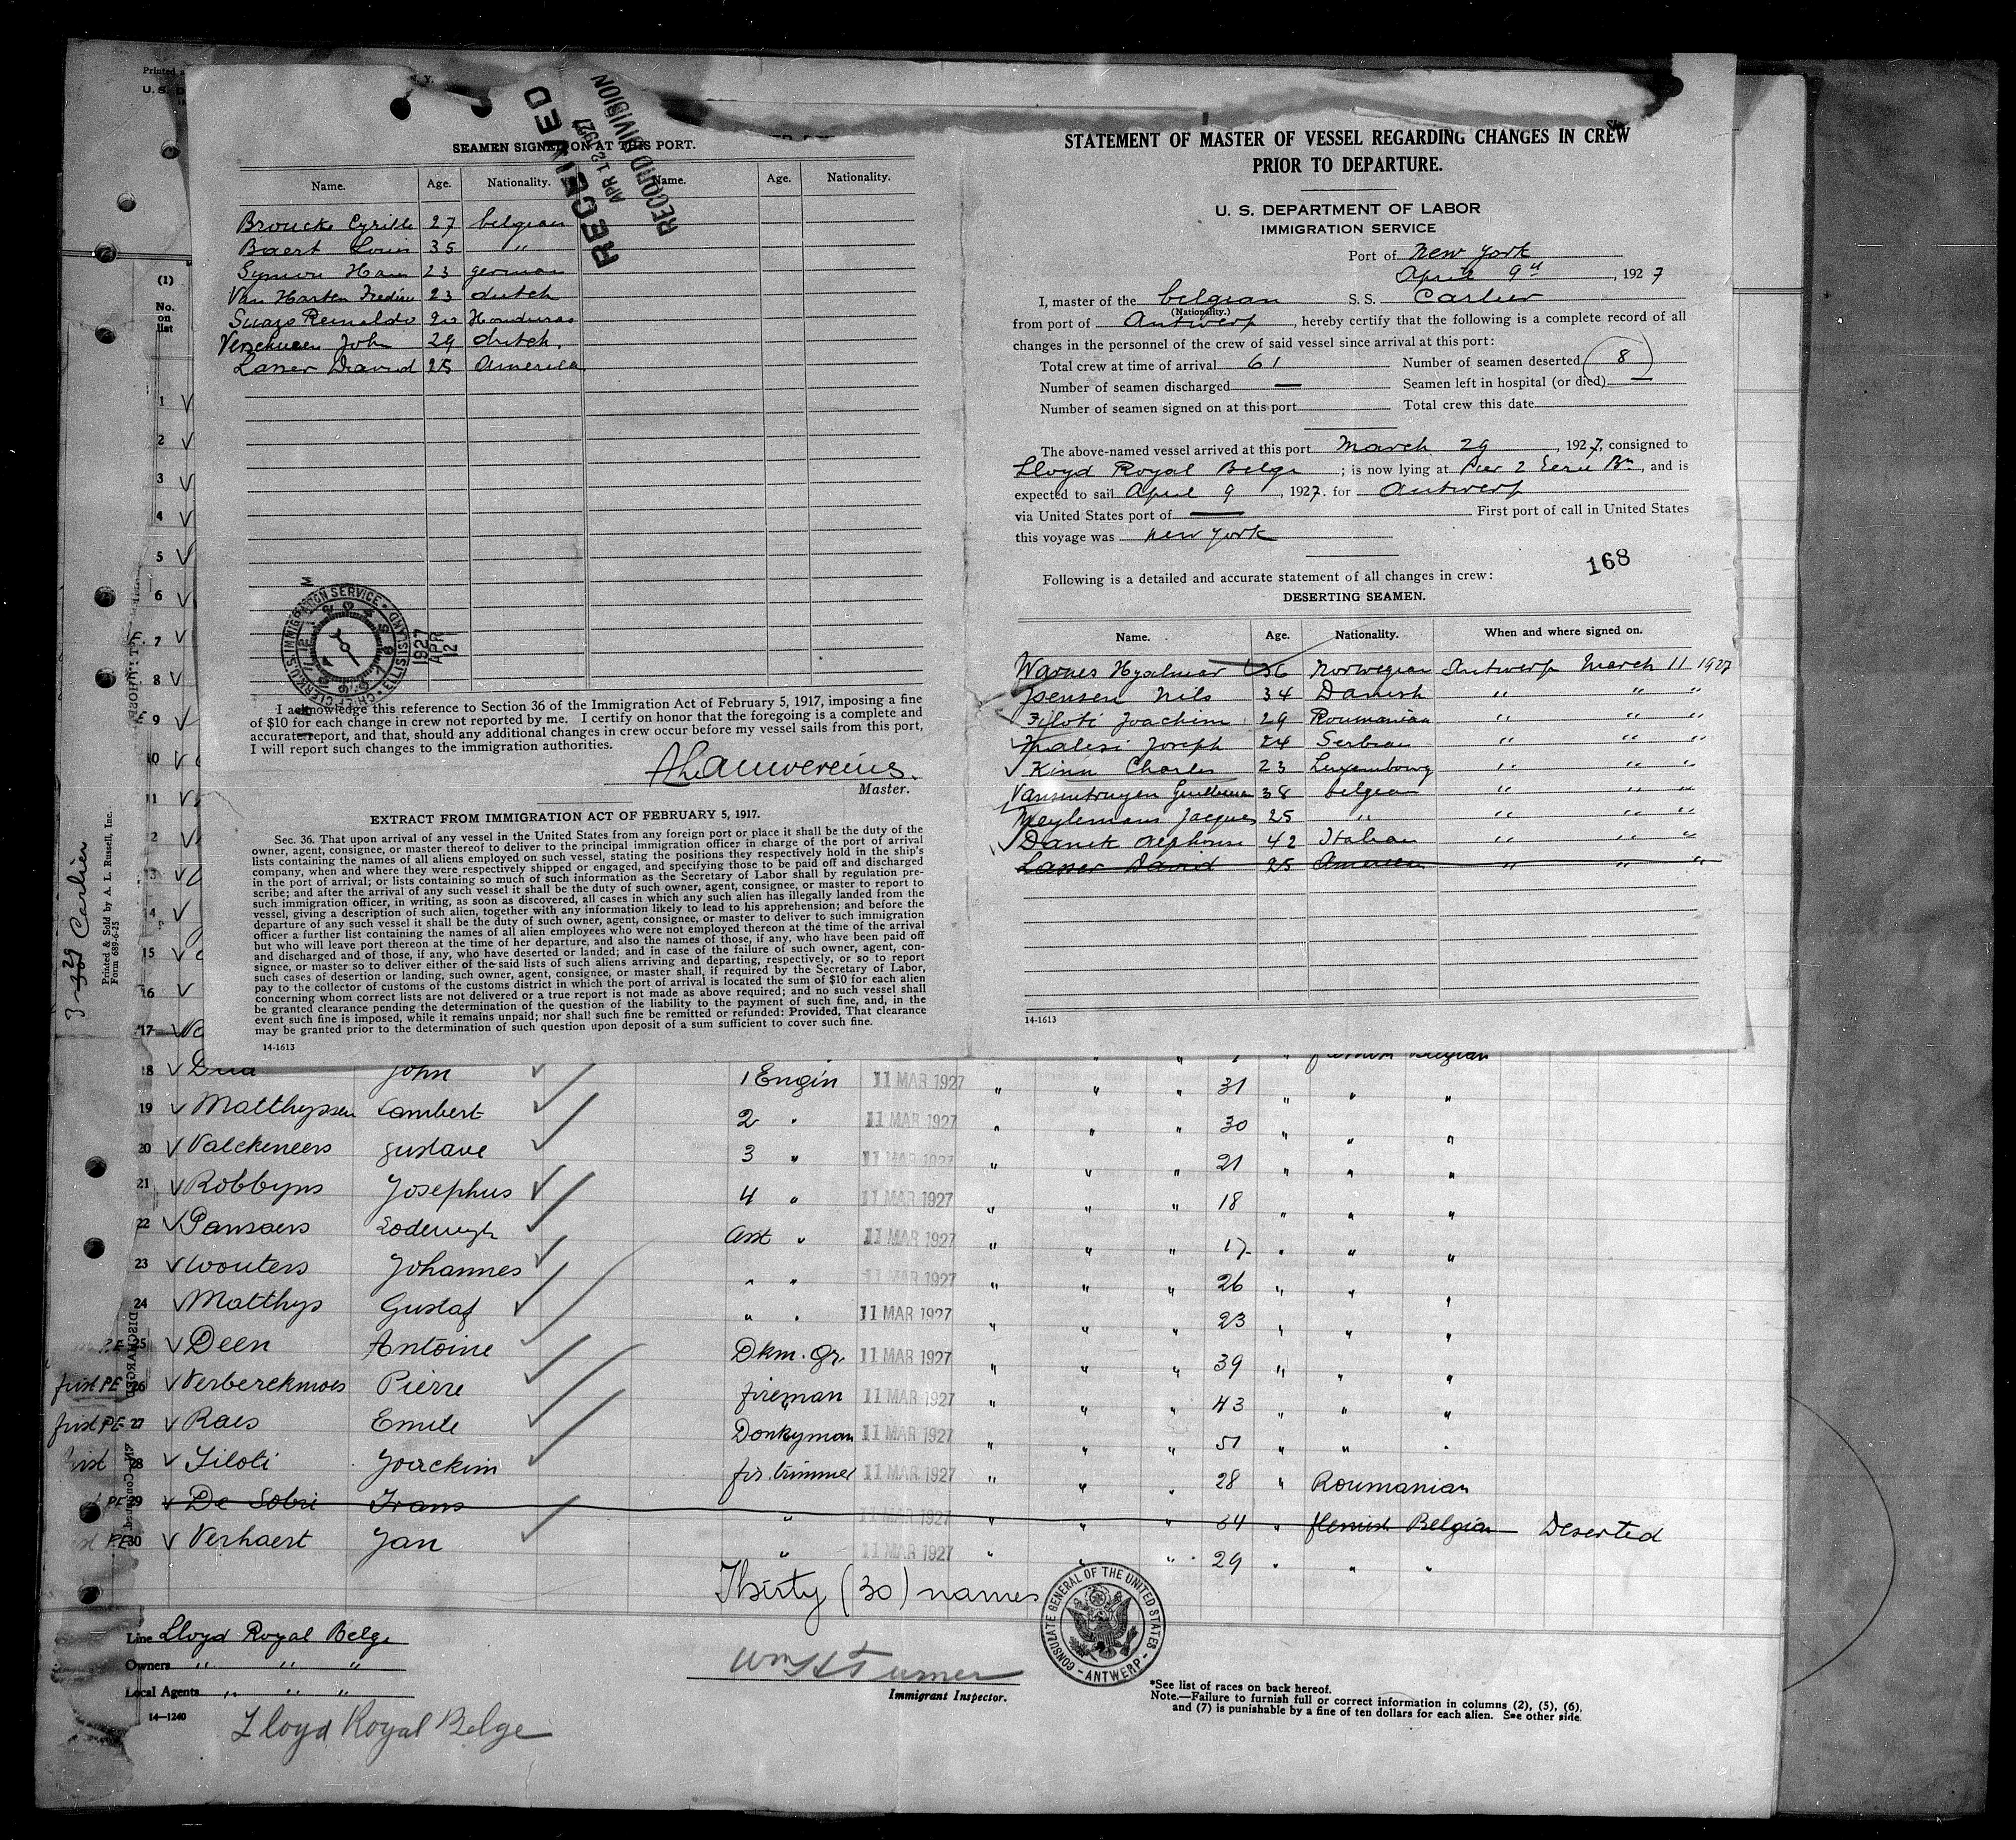 Printed
U. S. D
N. Y.
(1)
No.
on
list
1
2
3
4
5
6
7
8
9
10
11
2
13
14
15
16
17
3-29 Carlier
Printed & Sold by A. L. Russell, Inc.
Form 689-6-25
SEAMEN SIGNED ON AT THIS PORT.
RECEIVED
APR 12 1927
RECORD DIVISION
Name. Age. Nationality. Name. Age. Nationality.
Broucke Cyrille 27 belgian
Baert Louis 35 "
Symon Hans 23 german
Van Harten Frederic 23 dutch
Suazo Reinaldo 20 Honduras
Verschueren John 29 dutch.
Lasser David 25 America
U.S. IMMIGRATION SERVICE
1927
APR
12
I acknowledge this reference to Section 36 of the Immigration Act of February 5, 1917, imposing a fine
of $10 for each change in crew not reported by me. I certify on honor that the foregoing is a complete and
accurate report, and that, should any additional changes in crew occur before my vessel sails from this port,
I will report such changes to the immigration authorities.
Master.
EXTRACT FROM IMMIGRATION ACT OF FEBRUARY 5, 1917.
Sec. 36. That upon arrival of any vessel in the United States from any foreign port or place it shall be the duty of the
owner, agent, consignee, or master thereof to deliver to the principal immigration officer in charge of the port of arrival
lists containing the names of all aliens employed on such vessel, stating the positions they respectively hold in the ship's
company, when and where they were respectively shipped or engaged, and specifying those to be paid off and discharged
in the port of arrival; or lists containing so much of such information as the Secretary of Labor shall by regulation pre-
scribe; and after the arrival of any such vessel it shall be the duty of such owner, agent, consignee, or master to report to
such immigration officer, in writing, as soon as discovered, all cases in which any such alien has illegally landed from the
vessel, giving a description of such alien, together with any information likely to lead to his apprehension; and before the
departure of any such vessel it shall be the duty of such owner, agent, consignee, or master to deliver to such immigration
officer a further list containing the names of all alien employees who were not employed thereon at the time of the arrival
but who will leave port thereon at the time of her departure, and also the names of those, if any, who have been paid off
and discharged and of those, if any, who have deserted or landed; and in case of the failure of such owner, agent, con-
signee, or master so to deliver either of the said lists of such aliens arriving and departing, respectively, or so to report
such cases of desertion or landing, such owner, agent, consignee, or master shall, if required by the Secretary of Labor,
pay to the collector of customs of the customs district in which the port of arrival is located the sum of $10 for each alien
concerning whom correct lists are not delivered or a true report is not made as above required; and no such vessel shall
be granted clearance pending the determination of the question of the liability to the payment of such fine, and, in the
event such fine is imposed, while it remains unpaid; nor shall such fine be remitted or refunded: Provided, That clearance
may be granted prior to the determination of such question upon deposit of a sum sufficient to cover such fine.
14-1613
STATEMENT OF MASTER OF VESSEL REGARDING CHANGES IN CREW
PRIOR TO DEPARTURE.
U. S. DEPARTMENT OF LABOR
IMMIGRATION SERVICE
Port of New York
April 9th, 1927
I, master of the belgian S. S. Carlier
(Nationality.)
from port of Antwerp, hereby certify that the following is a complete record of all
changes in the personnel of the crew of said vessel since arrival at this port:
Total crew at time of arrival 61 Number of seamen deserted 8
Number of seamen discharged — Seamen left in hospital (or died) —
Number of seamen signed on at this port Total crew this date
The above-named vessel arrived at this port March 29, 1927, consigned to
Lloyd Royal Belge; is now lying at Pier 2 Erie Bn, and is
expected to sail April 9, 1927. for Antwerp
via United States port of — First port of call in United States
this voyage was new york
168
Following is a detailed and accurate statement of all changes in crew:
DESERTING SEAMEN.
Name. Age. Nationality. When and where signed on.
Warnes Hyalmar 36 Norwegian Antwerp March 11 1927
Joensen Nils 34 Danish " " "
Filoti Joachim 29 Roumanian " " "
Malesi Joseph 24 Serbian " " "
Kinn Charles 23 Luxembourg " " "
Vansentruyen Guillaume 38 belgian " " "
Meylemans Jacques 25 " " " "
Danik Alphonse 42 Italian " " "
Lasser David 25 American " " "
14-1613
18 John 1 Engin 11 MAR 1927 " " " 31 " " "
19 Matthyssen Lambert 2 " 11 MAR 1927 " " " 30 " " "
20 Valckeneers Gustave 3 " 11 MAR 1927 " " " 21 " " "
21 Robbyns Josephus 4 " 11 MAR 1927 " " " 18 " " "
22 Pansaers Lodewyk Asst " 11 MAR 1927 " " " 17 " " "
23 Wouters Johannes " " 11 MAR 1927 " " " 26 " " "
24 Matthys Gustaf " " 11 MAR 1927 " " " 23 " " "
PE 25 Deen Antoine Dkm. Gr. 11 MAR 1927 " " " 39 " " "
first PE 26 Verberckmoes Pierre fireman 11 MAR 1927 " " " 43 " " "
first PE 27 Raes Emile Donkyman 11 MAR 1927 " " " 51 " " "
first 28 Filoti Joackim fir. trimmer 11 MAR 1927 " " " 28 " Roumanian
PE 29 De Sobri Frans " 11 MAR 1927 " " " 34 " flemish Belgian Deserted
PE 30 Verhaert Jan " 11 MAR 1927 " " " 29 " " "
Thirty (30) names
CONSULATE GENERAL OF THE UNITED STATES - ANTWERP -
Line Lloyd Royal Belge
Owners " " "
Local Agents " " "
14—1240
Lloyd Royal Belge
Wm H Turner
Immigrant Inspector.
*See list of races on back hereof.
Note.—Failure to furnish full or correct information in columns (2), (5), (6),
and (7) is punishable by a fine of ten dollars for each alien. See other side.